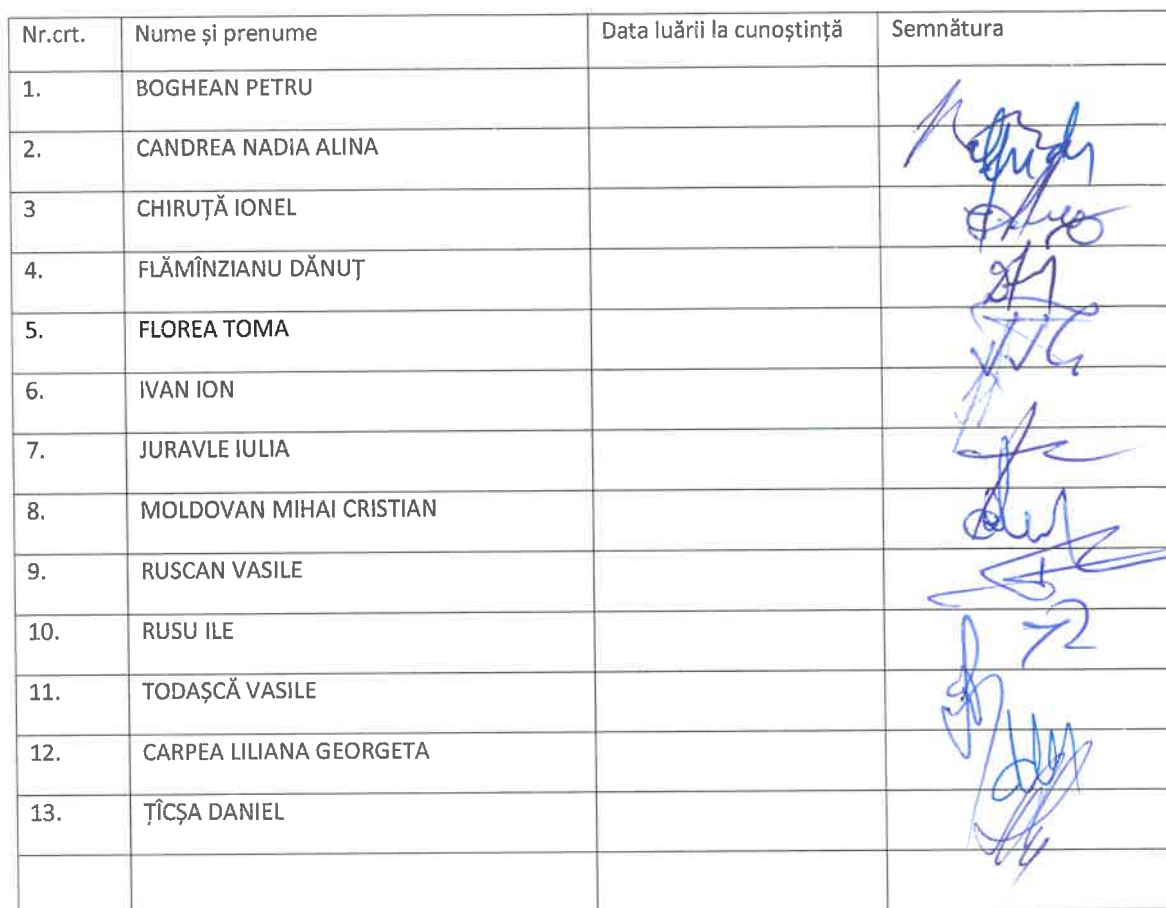 Nr.crt. Nume și prenume Data luării la cunoștință Semnătura
1. BOGHEAN PETRU
2. CANDREA NADIA ALINA
3 CHIRUȚĂ IONEL
4. FLĂMÎNZIANU DĂNUȚ
5. FLOREA TOMA
6. IVAN ION
7. JURAVLE IULIA
8. MOLDOVAN MIHAI CRISTIAN
9. RUSCAN VASILE
10. RUSU ILE
11. TODAȘCĂ VASILE
12. CARPEA LILIANA GEORGETA
13. ȚÎCȘA DANIEL